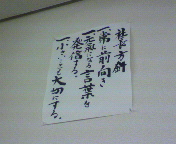 社長方針
一、常に前向き
一、元気になる言葉を
発信する。
一、小さいことも大切にする。